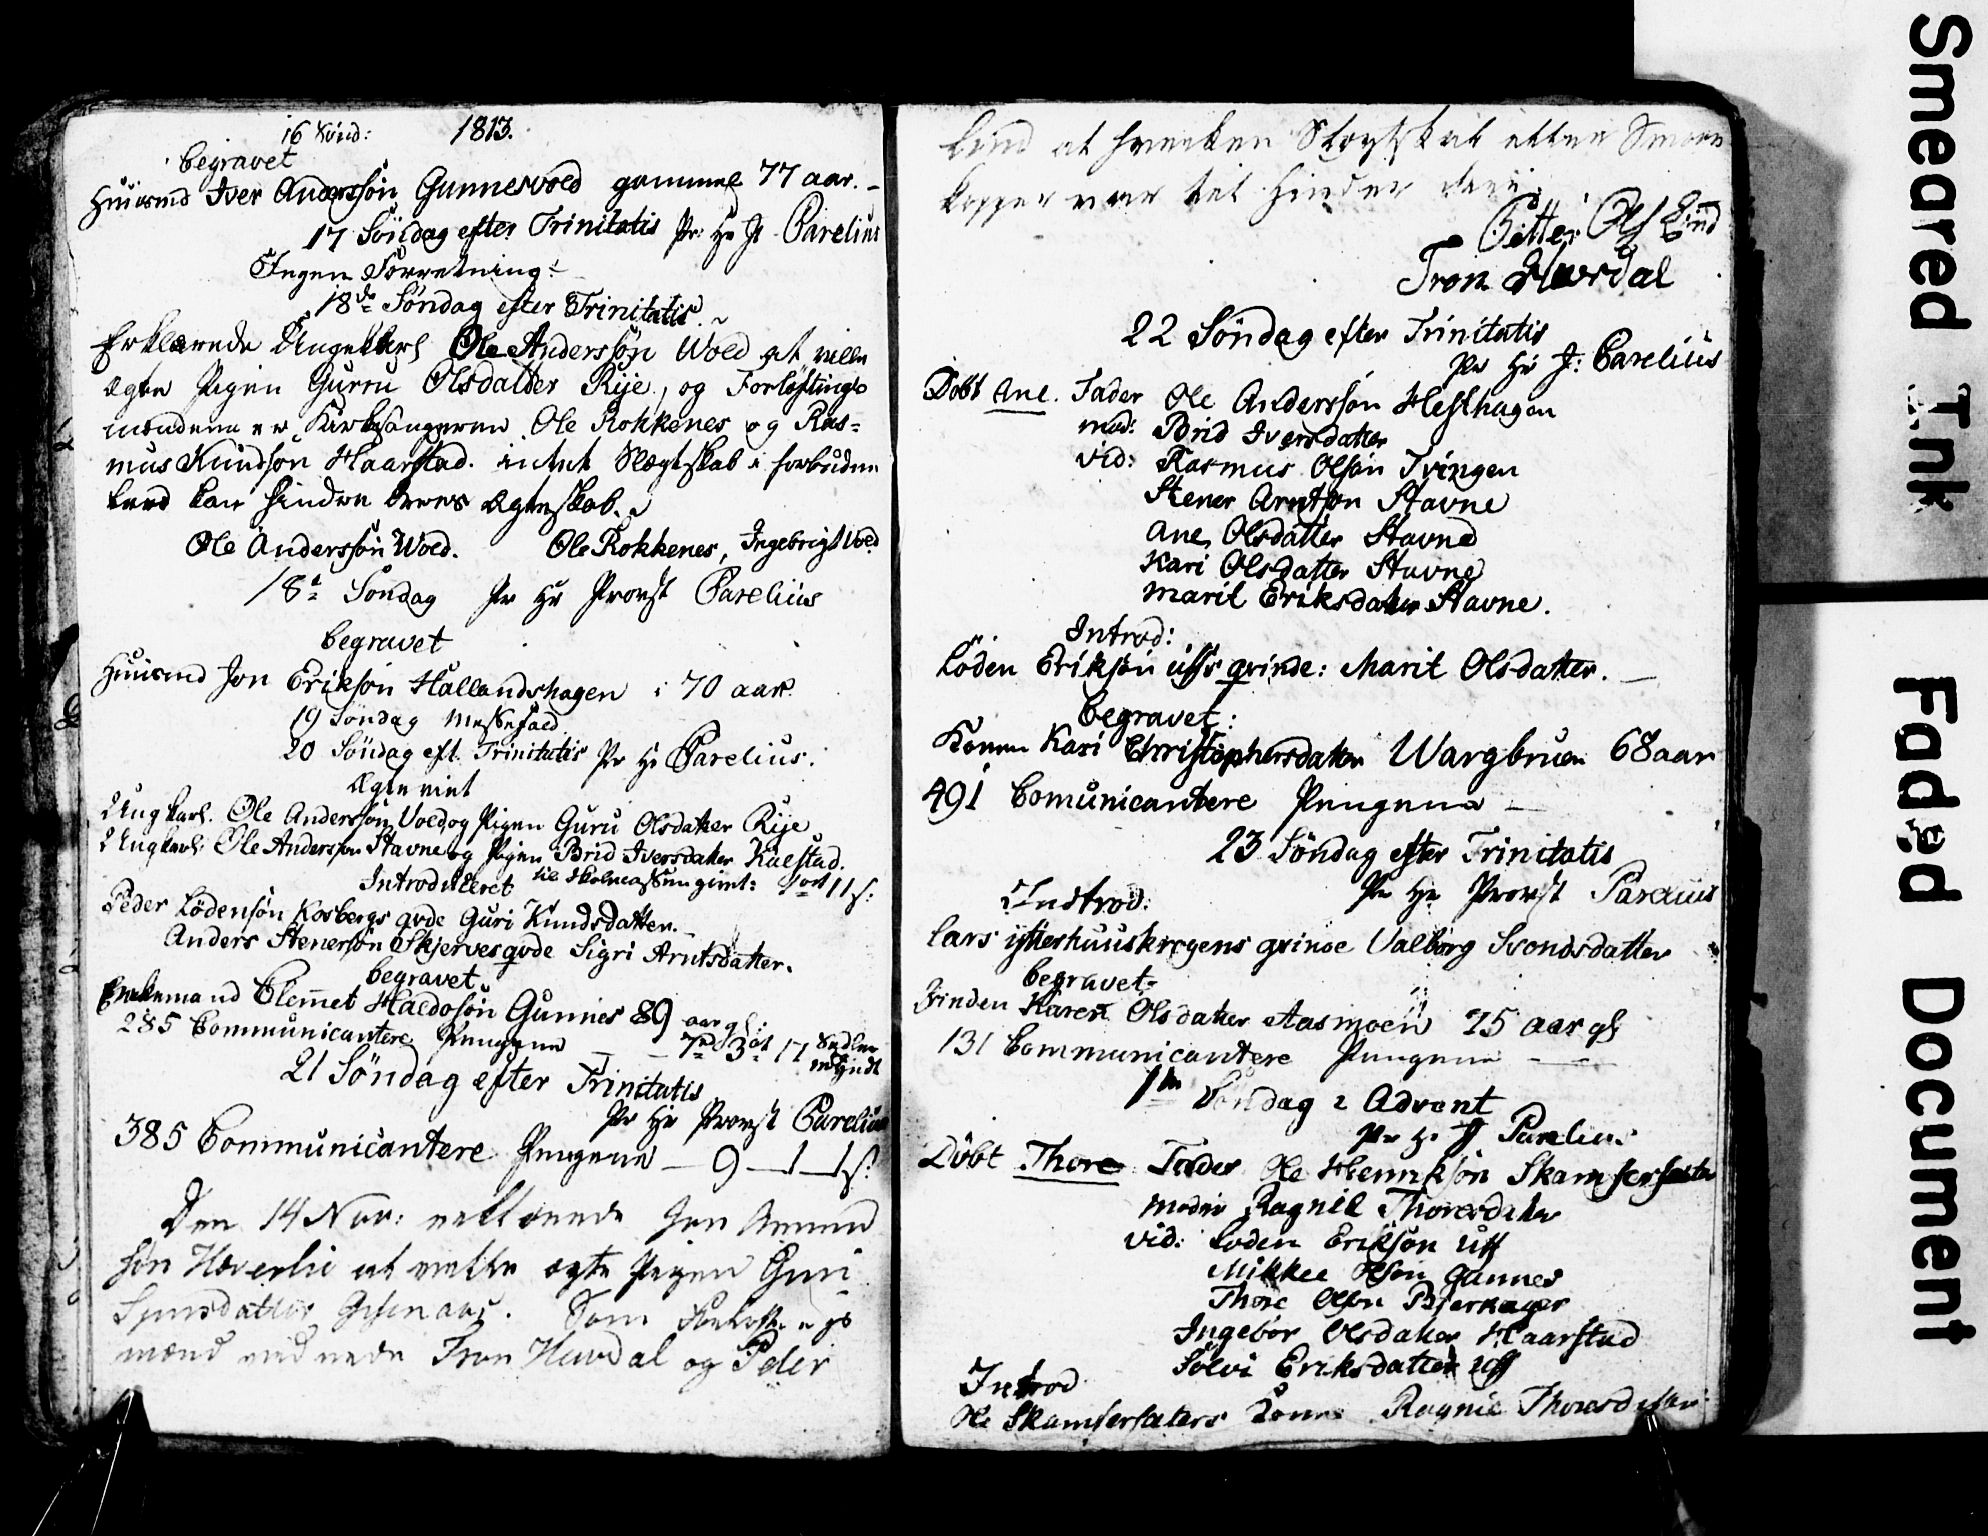 16 Sönd: 1813.
begravet
Huusmd Iver Anderssön Gunneswold gammel 77 aar. -
17 Söndag efter Trinitatis Pr: Hr J: Parelius
Ingen Forretning:
18de Söndag efter Trinitatis.
Erklærede Ungekarl Ole Anderssön Wold at ville
ægte Pigen Gurru Olsdatter Rije, og Forlöftings
mændene er Kirksangeren Ole Rokkenes og Ras=
mus Knudsön Haarstad. intet Slægtskab i forbudne
leed kan hindre deres Ægteskab.
Ole Anderssön Wold. Ole Rokkenes, Ingebrigt Vold
18de Söndag Pr Hr Provst Parelius
begravet
Huusmd Jon Eriksön Hallandshagen i 70 aar.
19 Söndag Messefald
20 Söndag eft. Trinitatis Pr Hr Parelius.
Ægteviet
Ungkarl. Ole Anderssön Vold og Pigen Guru Olsdatter Rije
Ungkarl: Ole Anderssön Stavne og Pigen Brid Iversdatter Kaelstad.
Introduceret til Skolecassen givet: 1 ort 11 s:
Peder Lödensön Kosbergs qvde Guri Knudsdatter.
Anders Stenersön Skjerves qvde Sigri Arntsdatter.
begravet
Enkemand Clemet Haldosön Gunnes 89 aar gl:
285 Communicantere Pengene — 7rd 3ort 17 Sedler
21 Söndag efter Trinitatis
Pr Hr Provst Parelius
385 Communicantere Pengene — 9—1—1 s:
Den 14 Nov: erklærede Jon Amund
sön Hæverlie at ville ægte Pigen Guri
Som Forlöftnings
mænd vednede Tron Havdal og Peder
Lind at hverken Slegtskab etter Smaae
kopper var det hinder deri
Petter Ols Lind
Tron Havdal
22 Söndag efter Trinitatis
Pr Hr J: Parelius
Döbt Ane. Fader Ole Anderssön Hesthagen
mod: Brid Iversdatter
vid: Rasmus Olsön Tvingen
Stener Arntsön Stavne
Ane Olsdatter Stavne
Kari Olsdatter Stavne
Marit Eriksdatter Stavne.
Introd:
Löden Eriksön Ufs qvinde: Marit Olsdatter. —
begravet:
Konen Kari Christophersdatter Wargbruen 68 aar
491 Comunicantere Pengene —
23 Söndag efter Trinitatis
Pr Hr Provst Parelius
Introd:
Lars ytterhuuskrogens qvinde Valborg Svendsdatter
begravet
Qvinden Karen Olsdatter Aasmoen 75 aar gl
131 Communicantere Pengene —
1ste Söndag i Advent
Pr Hr J Parelius
Döbt Thore Fader Ole Henriksön Skamfersæter
moder Ragnil Thoresdatter
vid: Loden Eriksön Uff
Mikkel Olsön Gunnes
Thore Olsön Bjerkager
Ingebor Olsdatter Haarstad
Sölvi Eriksdatter Uff
Introd
Ole Skamfersæters Kone Ragnil Thoresdatter
Smeared Ink
Faded Document